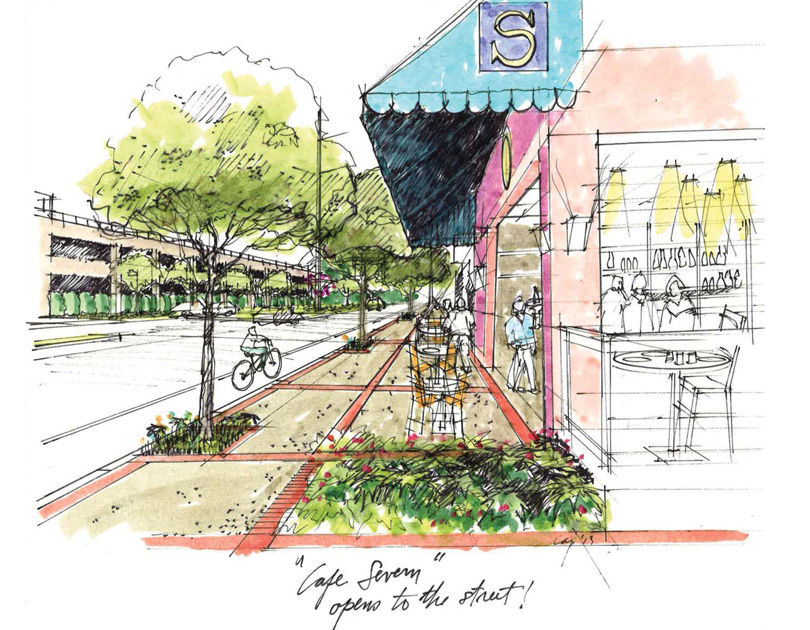 S
"Cafe Severn"
opens to the street!